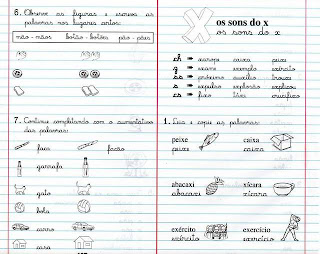 6. Observe as figuras e escreva as
palavras nos lugares certos:
mão - mãos botão - botões pão - pães
7. Continue completando com o aumentativo
das palavras:
faca facão
garrafa
gato
bola
carro
casa
X os sons do x
os sons do x
ch xarope caixa peixe
z exame exemplo exército
ss próximo auxílio trouxe
s explosão
cs fixo táxi crucifixo
1. Leia e copie as palavras:
peixe caixa
peixe caixa
abacaxi xícara
abacaxi xícara
exército exercício
exército exercício